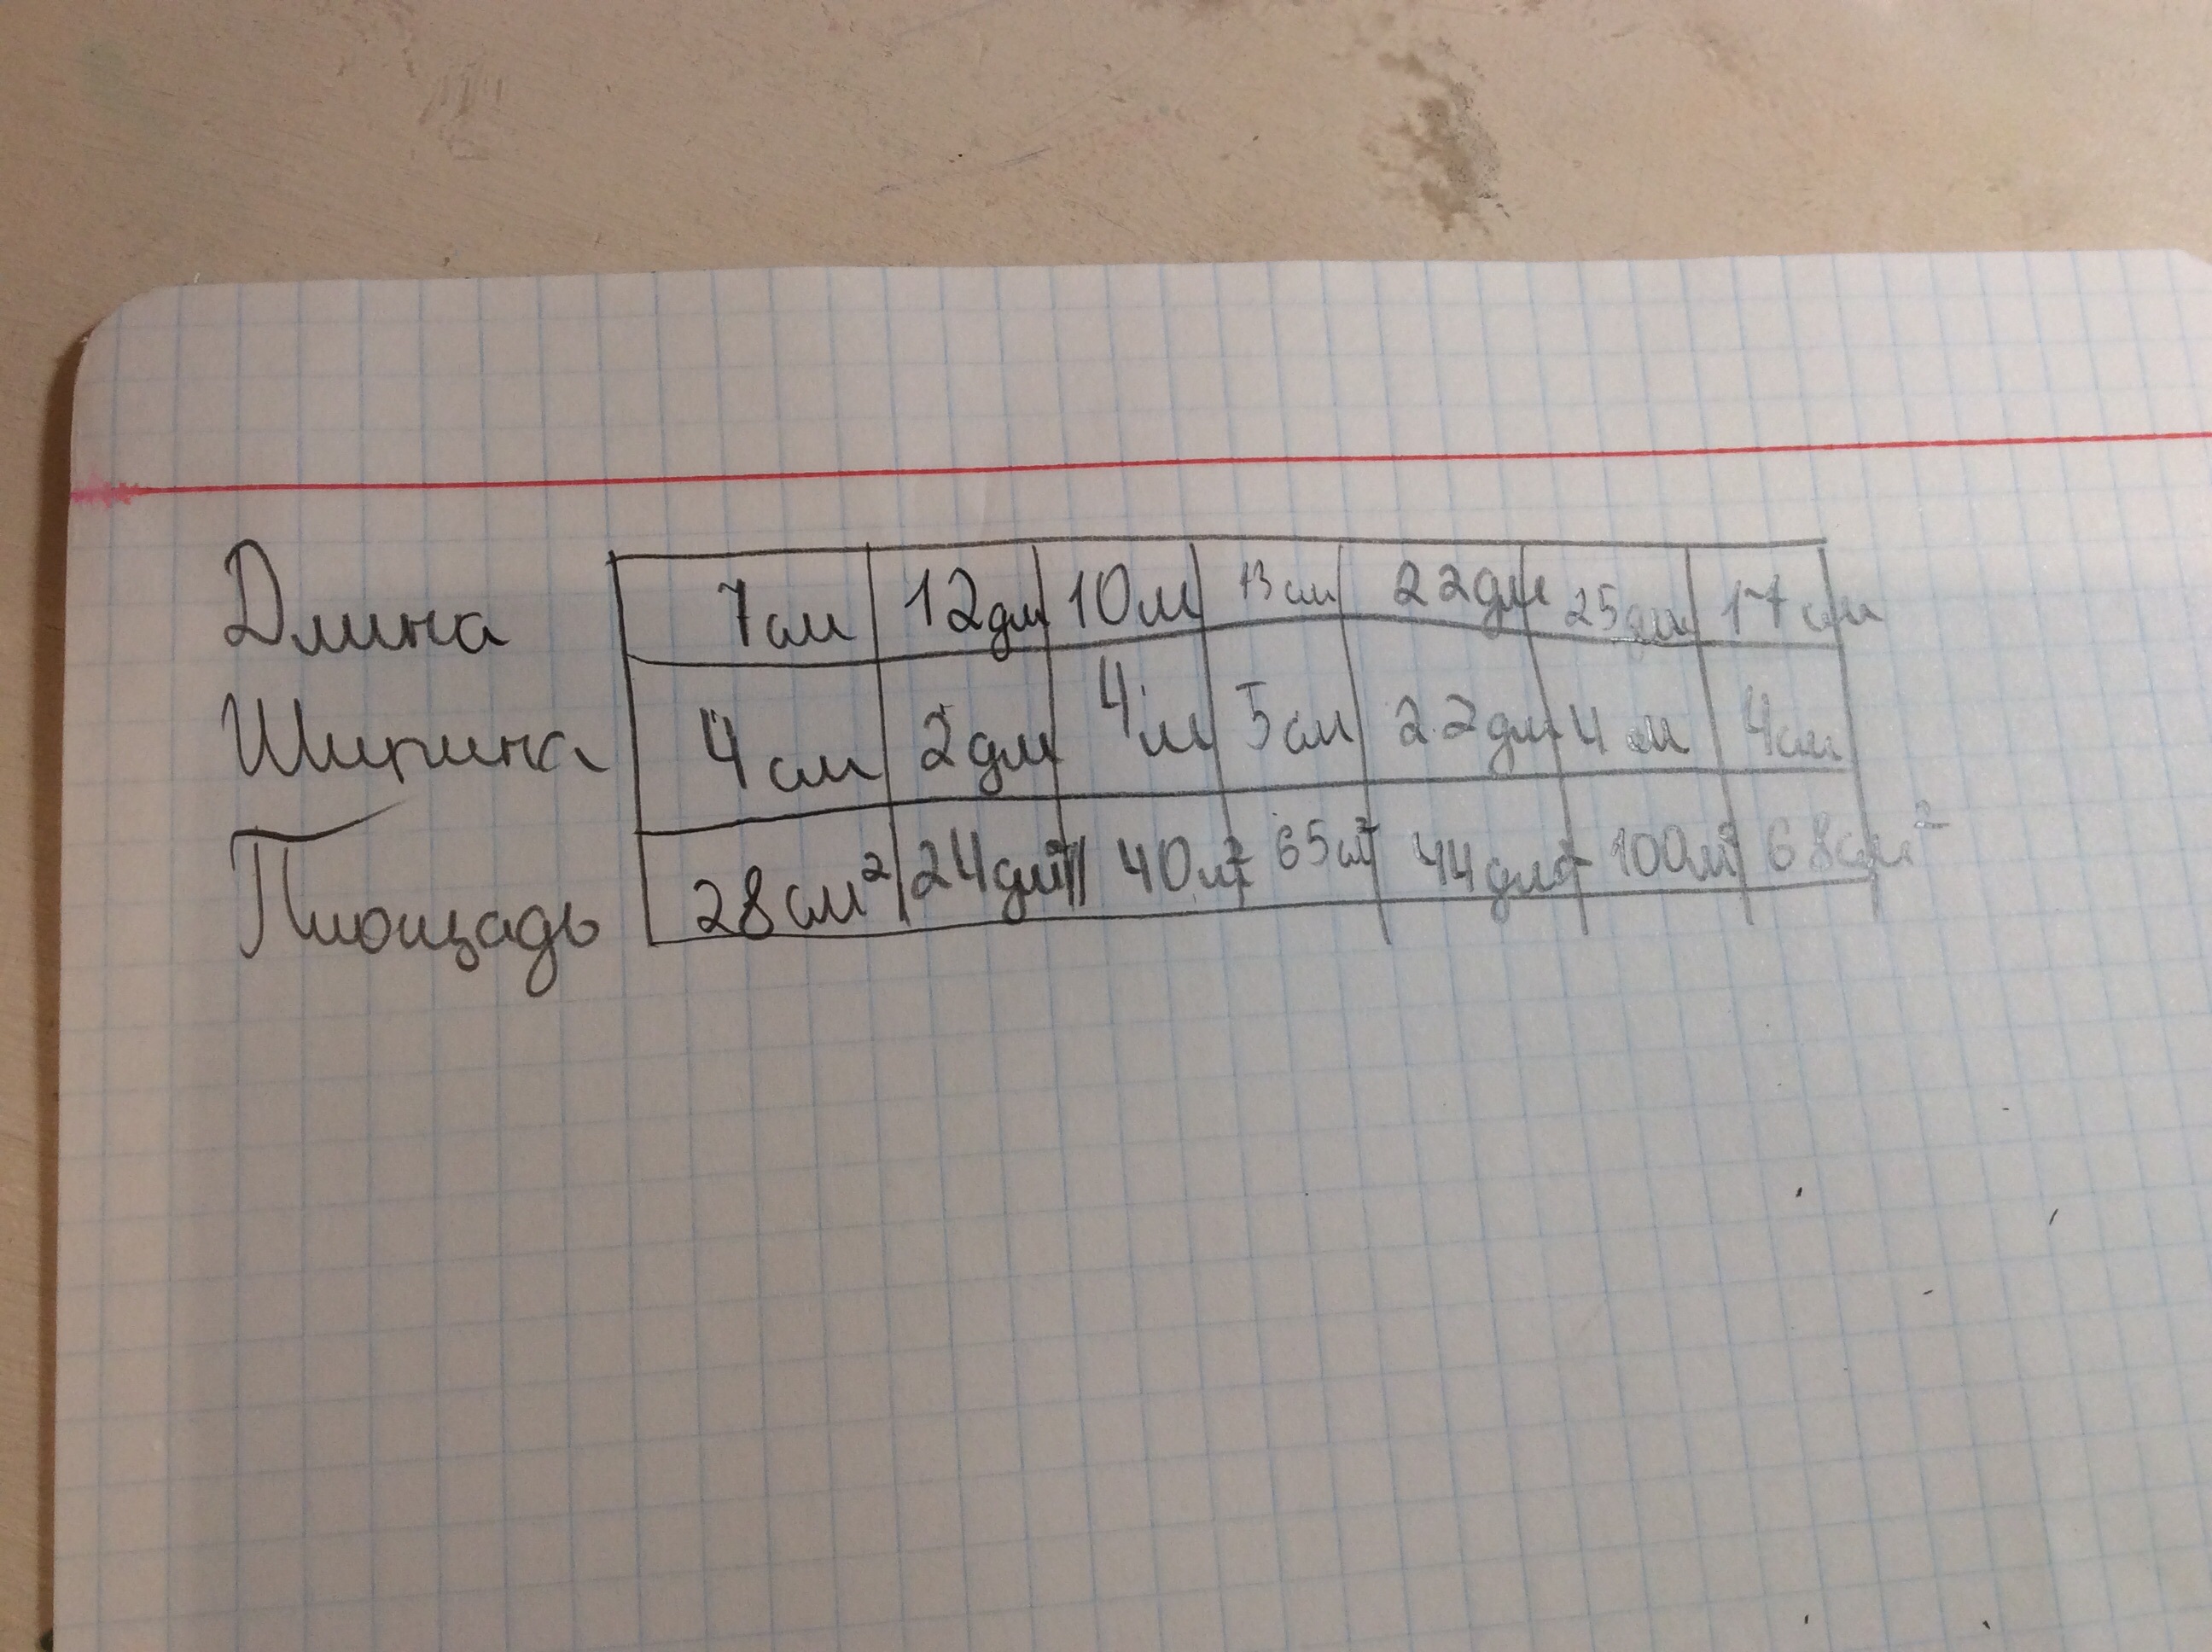 Длина 7см 12дм 10м 13см 22дм 25дм 17см
Ширина 4см 2дм 4м 5см 22дм 4м 4см
Площадь 28см² 24дм² 40м² 65см² 44дм² 100м² 68см²